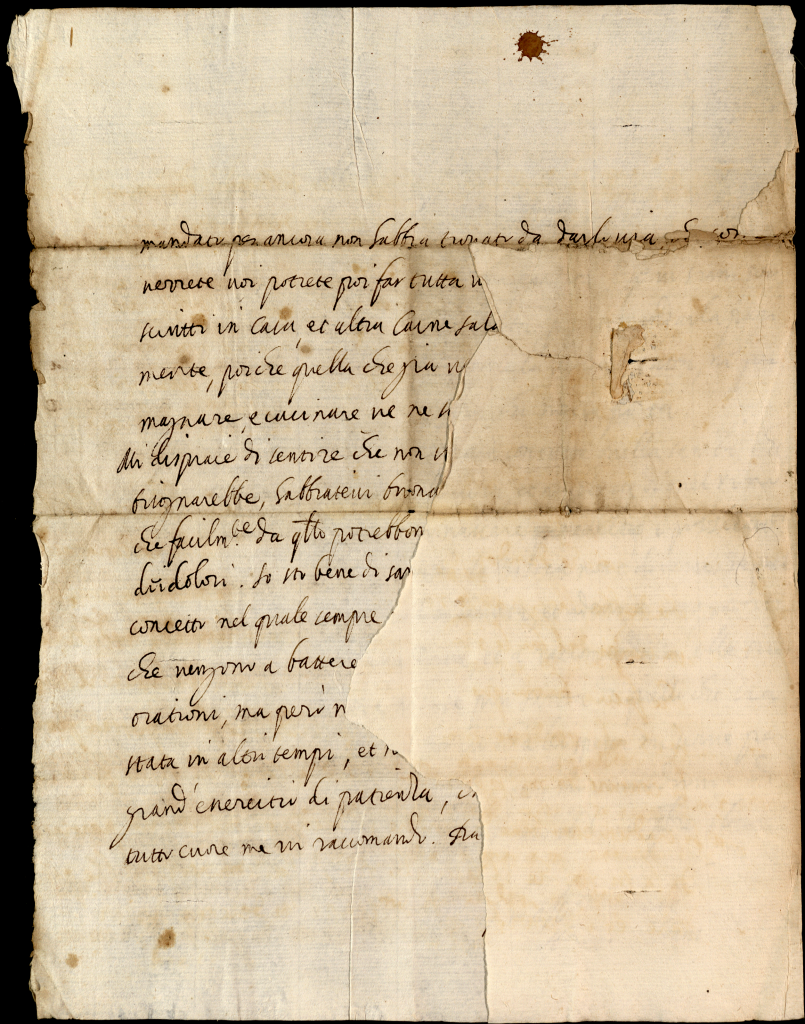 mandato per ancora non habbia trovato da darlo via, 
verrete voi potrete poi far tutta
scritti in casa, et altra carne sala
mente, poiche quella che gia v
magnare, e cucinare ve ne
Mi dispiace di sentire che non
bisognarebbe, habbiatevi buona
che facilm.te da q̃llo potrebbon
dei dolori. Io sto bene di san
concetto nel quale sempre
che vengono a battere
orationi, ma però n
stata in altri tempi, et
grand'esercitio di patienza,
tutto cuore me vi raccomando. Da